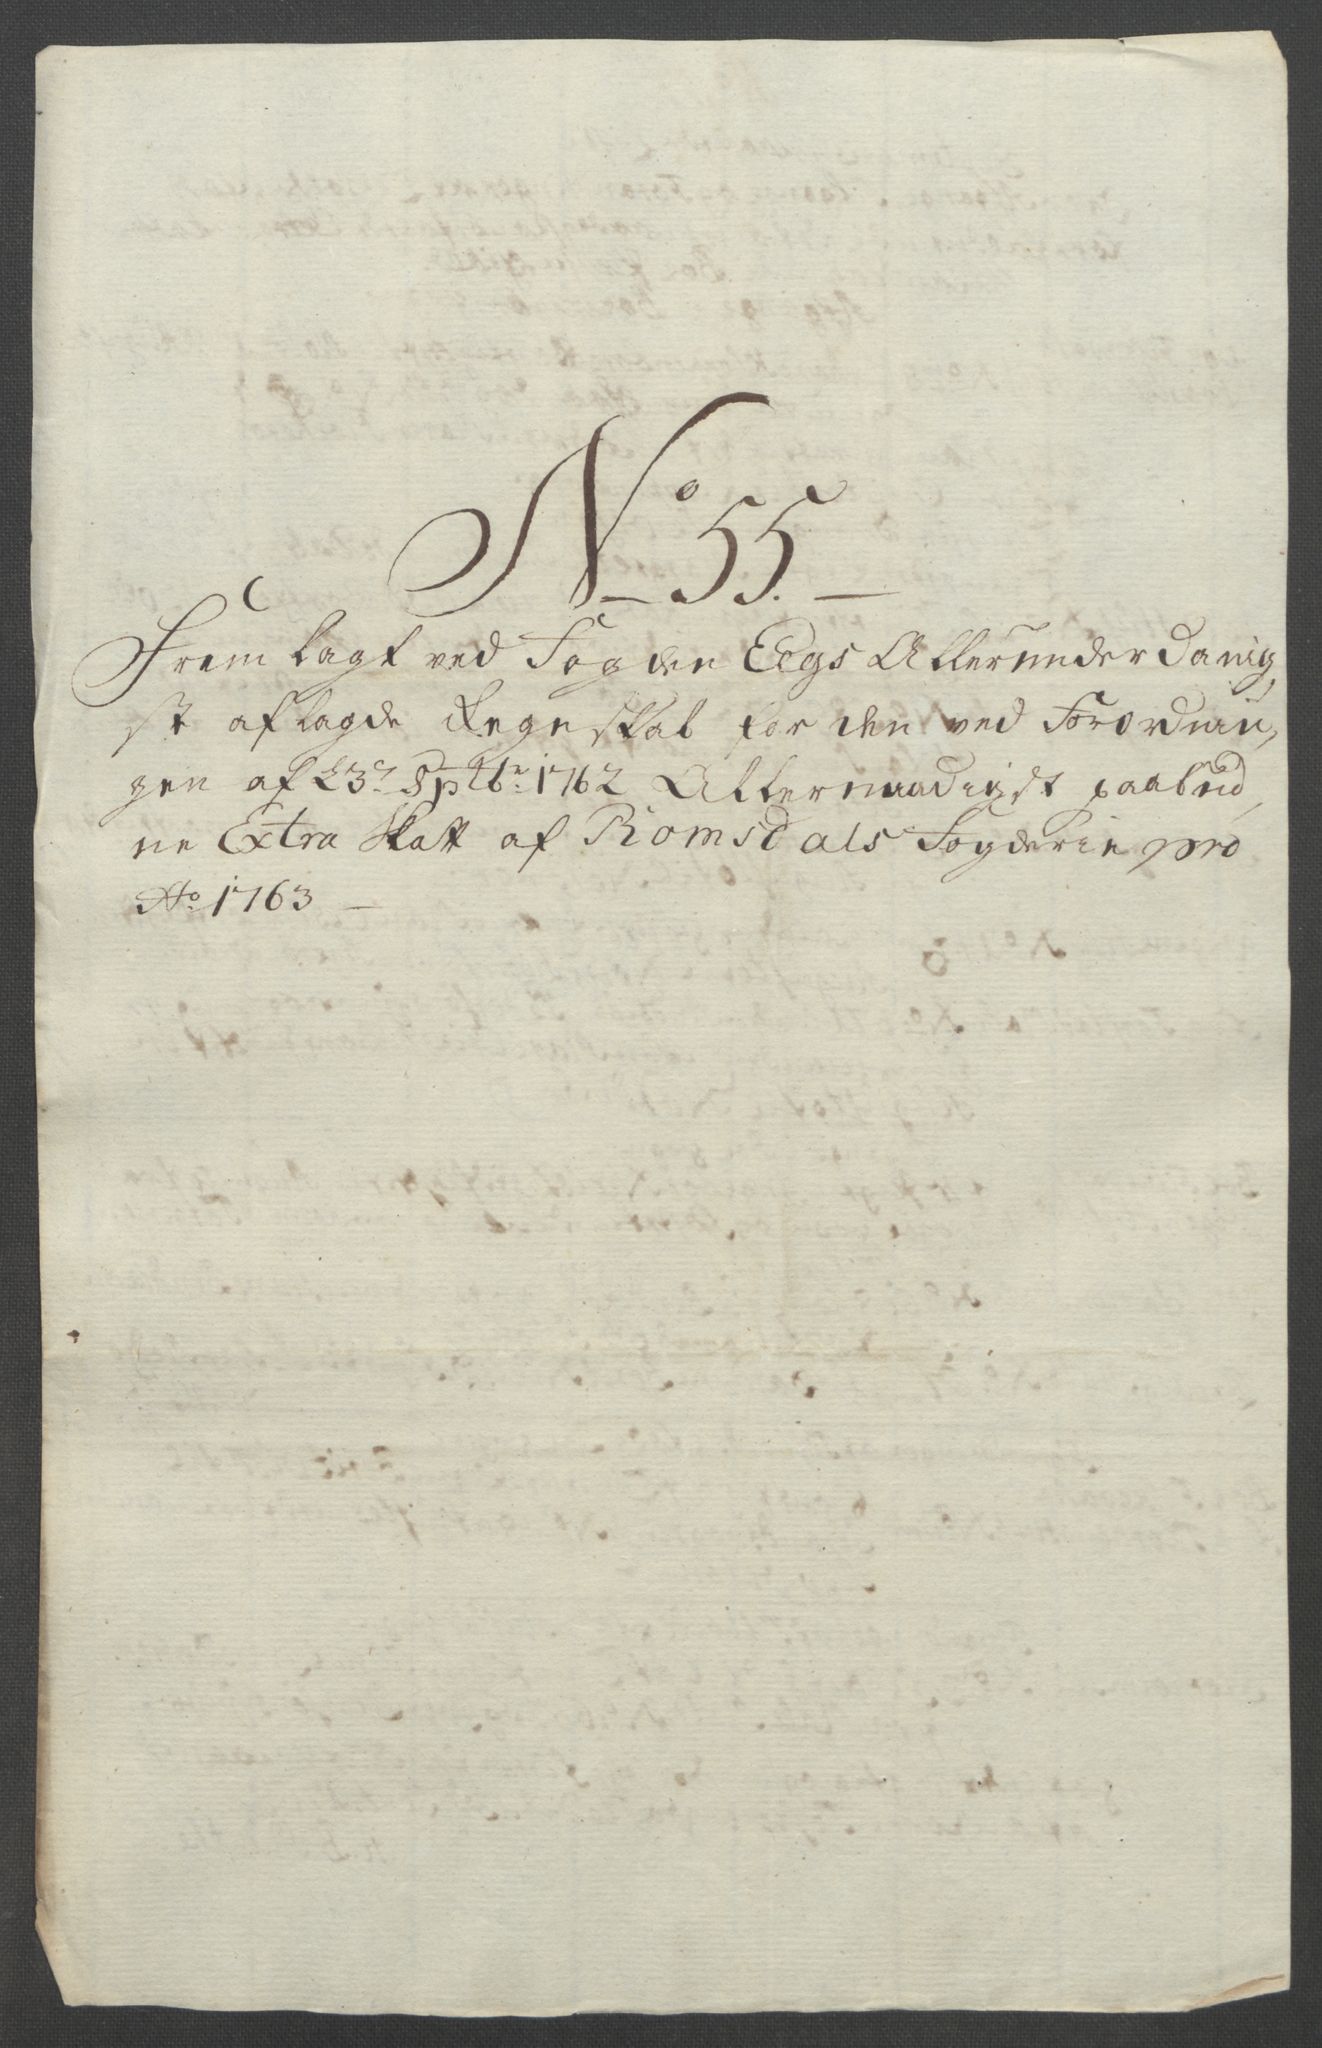 No 55.
Frem lagt ved Fogden Eegs Allerunderdanig,
st aflagde Regenskab for den ved Forordnin,
gen af 23de Sptbr: 1762 Allernaadigst paabud,
ne Extra Skatt af Romsdals Fogderie pro
Ao: 1763 —